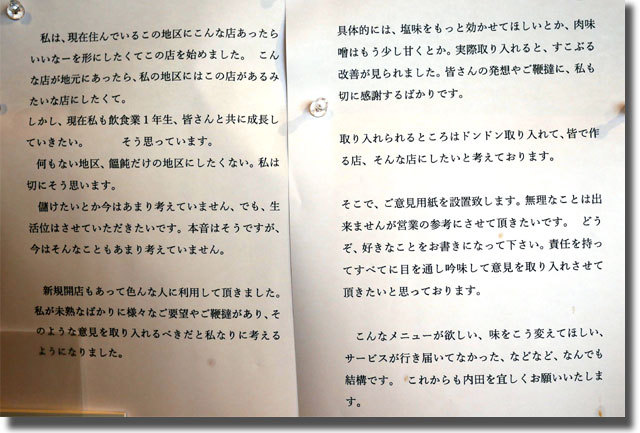 私は、現在住んでいるこの地区にこんな店あったら
いいなーを形にしたくてこの店を始めました。　こん
な店が地元にあったら、私の地区にはこの店があるみ
たいな店にしたくて。
しかし、現在私も飲食業１年生、皆さんと共に成長し
ていきたい。　　　そう思っています。
何もない地区、饂飩だけの地区にしたくない。私は
切にそう思います。
儲けたいとか今はあまり考えていません、でも、生
活位はさせていただきたいです。本音はそうですが、
今はそんなこともあまり考えていません。
新規開店もあって色んな人に利用して頂きました。
私が未熟なばかりに様々なご要望やご鞭撻があり、そ
のような意見を取り入れるべきだと私なりに考える
ようになりました。
具体的には、塩味をもっと効かせてほしいとか、肉味
噌はもう少し甘くとか。実際取り入れると、すこぶる
改善が見られました。皆さんの発想やご鞭撻に、私も
切に感謝するばかりです。
取り入れられるところはドンドン取り入れて、皆で作
る店、そんな店にしたいと考えております。
そこで、ご意見用紙を設置致します。無理なことは出
来ませんが営業の参考にさせて頂きたいです。　どう
ぞ、好きなことをお書きになって下さい。責任を持っ
てすべてに目を通し吟味して意見を取り入れさせて
頂きたいと思っております。
こんなメニューが欲しい、味をこう変えてほしい、
サービスが行き届いてなかった、などなど、なんでも
結構です。　これからも内田を宜しくお願いいたしま
す。